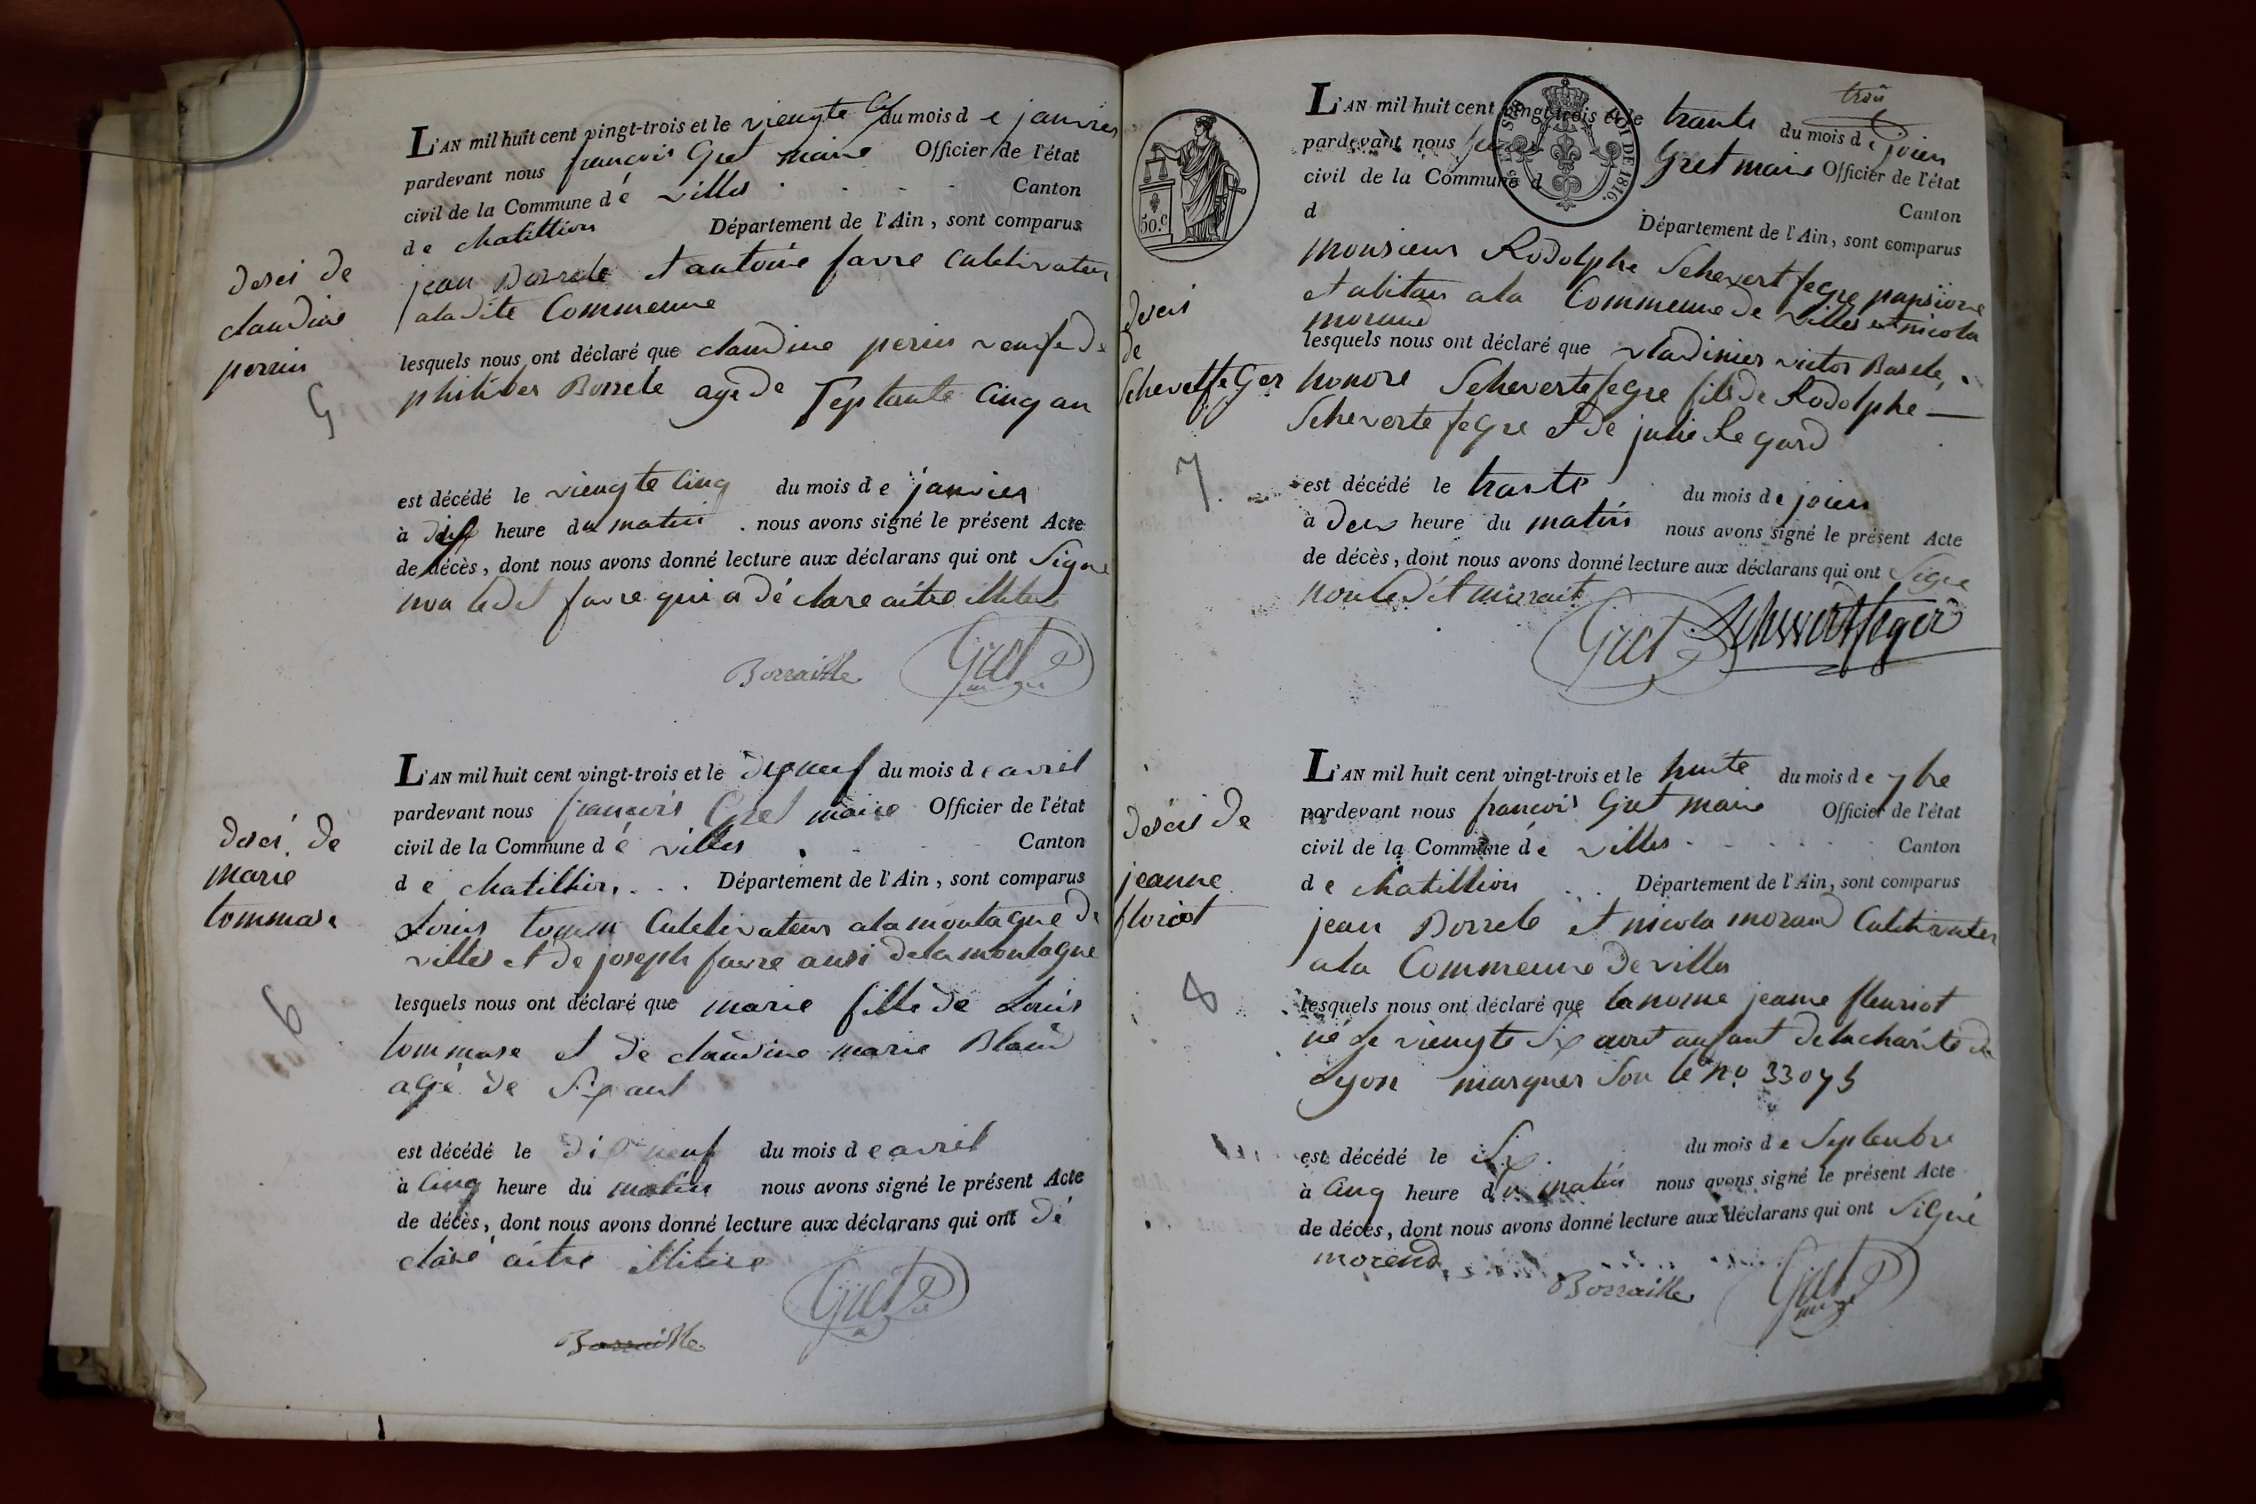 L'AN mil huit cent vingt-trois et le viengte du mois d e janvier
pardevant nous françois Gret maire Officier de l'état
civil de la Commune d é villes Canton
d e chatillion Département de l'Ain, sont comparus
jean Borrele et antoine favre Culetivateur
aladite Commeune
lesquels nous ont déclaré que claudine perin veufe de
philiber Borrele agé de septante Cinq an
deséi de
claudine
perrin
5
est décédé le viengte Cinq du mois d e janvier
à heure du matin nous avons signé le présent Acte
de décès, dont nous avons donné lecture aux déclarans qui ont Signé
non ledit favre qui a déclare aitre illitere
Borraille Gret
L'AN mil huit cent vingt-trois et le dixneuf du mois d e avril
pardevant nous françois Gret maire Officier de l'état
civil de la Commune d é villes Canton
d e chatillion Département de l'Ain, sont comparus
Louis Culetivateur ala montagne de
villes et de joseph favre ausi dela montagne
lesquels nous ont déclaré que marie fille de Louis
tommase et de claudine marie Blanc
agé de Six ant
deséi de
marie
tommase
6
est décédé le dixneuf du mois d e avril
à Cinq heure du matin nous avons signé le présent Acte
de décès, dont nous avons donné lecture aux déclarans qui ont dé
claré aitre illitere
Gret
Borraille
50.c
ROI DE 1816.
L'AN mil huit cent vingt-trois et le trante du mois d e joien
pardevant nous Gret maire Officier de l'état
civil de la Commune d Canton
d Département de l'Ain, sont comparus
monsieur Rodolphe Schevertfegre
et abitan ala Commeune de villes et nicola
morand
lesquels nous ont déclaré que vladimier victor Basele
honore Schevertefegre fils de Rodolphe
Scheverte fegre et de julie Le gard
deséi
de
Schevetfeger
7
est décédé le trante du mois d e joien
à deux heure du matin nous avons signé le présent Acte
de décès, dont nous avons donné lecture aux déclarans qui ont Signé
non ledit
Gret Schwerdtfeger
L'AN mil huit cent vingt-trois et le huite du mois d e 7bre
pardevant nous françois Gret maire Officier de l'état
civil de la Commune d e villes Canton
d e chatillion Département de l'Ain, sont comparus
jean Borrele et nicola morand Culetivater
ala Commeune de villes
lesquels nous ont déclaré que la nomé jeanne fleuriot
né le viengte Six aout anfant de la charité de
Lyon marquer Sou le no. 33075
deséis de
jeanne
floriot
8
est décédé le Six du mois d e Septenbre
à Cinq heure du matin nous avons signé le présent Acte
de décès, dont nous avons donné lecture aux déclarans qui ont Signé
morend
Borraille Gret